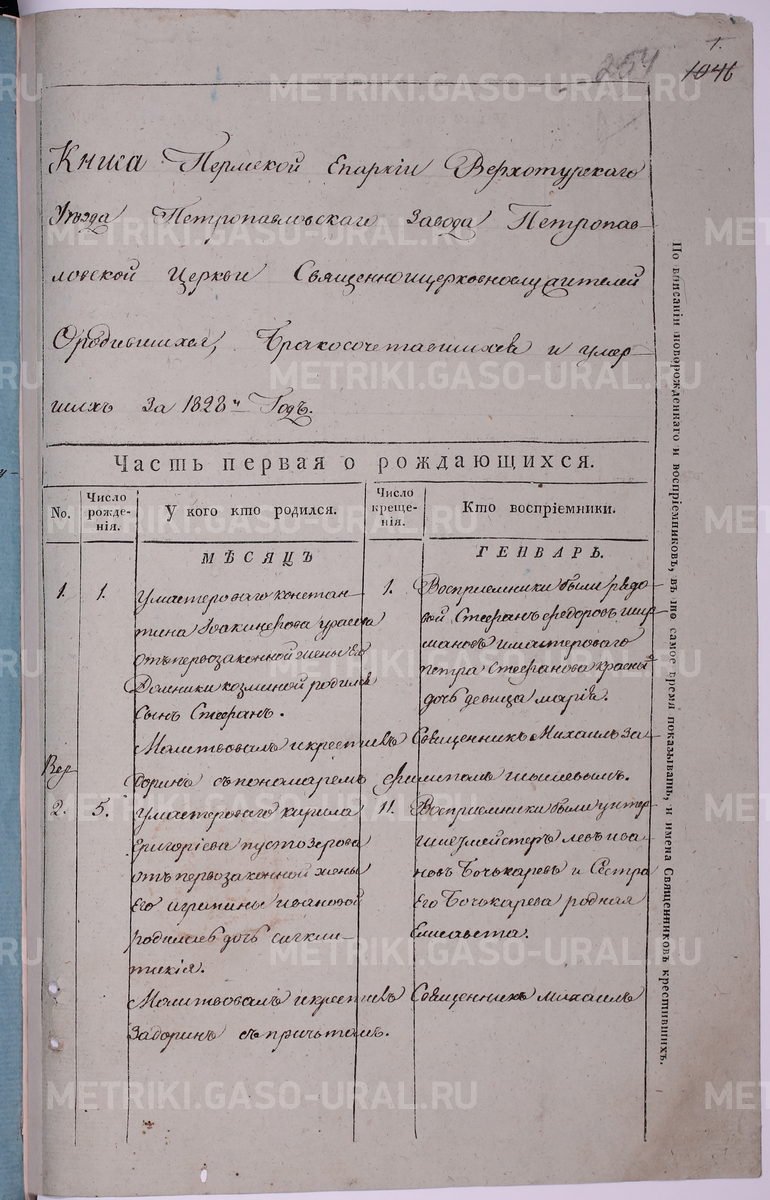 254
1.
1046
Книга Пермской Епархіи Верхотурскаго
Уѣзда Петропавловскаго Завода Петропав-
ловской Церкви Священноицерковнослужителей
Ородившихся, Бракосочетавшихся и умер-
шихъ За 1828й Годъ.
Часть первая о рождающихся.
No.
Число рожде-
нія.
У кого кто родился.
Число креще-
нія.
Кто воспріемники.
МѢСЯЦЪ
ГЕНВАРЬ.
1.
1.
Умастероваго констан-
тина Іоакинфова
отъ первозаконной жены Его
Домники козминой родился
Сынъ Стефанъ.
1.
Восприемники были рядо-
вой Стефанъ федоровъ
имастероваго
петра Стефанова
дочь девица марія.
Молитвовалъ икрестилъ Священникъ Михаилъ За-
доринъ съ пономаремъ
Вер
2.
5.
Умастероваго кирила
григоріева пустозерова
отъ первозаконной жены
Его игрипины ивановой
родилась дочь сигкли-
тикія.
11.
Восприемники были унтер-
шихмейстеръ левъ ива-
новъ Бочькаревъ и Сестра
Его Бочькарева родная
Елисавета.
Молитвовалъ икрестилъ Священникъ михаилъ
Задоринъ съ причьтомъ.
По вписаніи новорожденнаго и воспріемниковъ, въ то самое время показывать, и имена Священниковъ крестившихъ.
METRIKI.GASO-URAL.RU